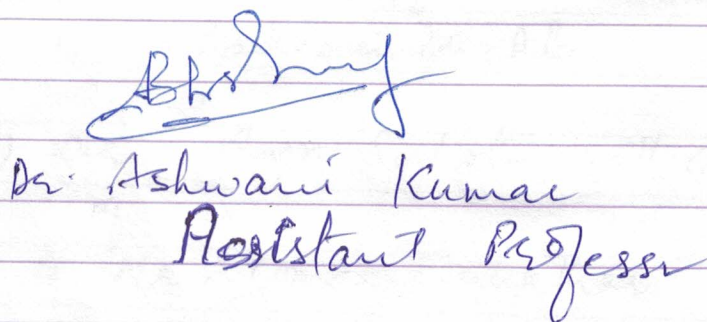 Dr. Ashwani Kumar
Assistant Professor